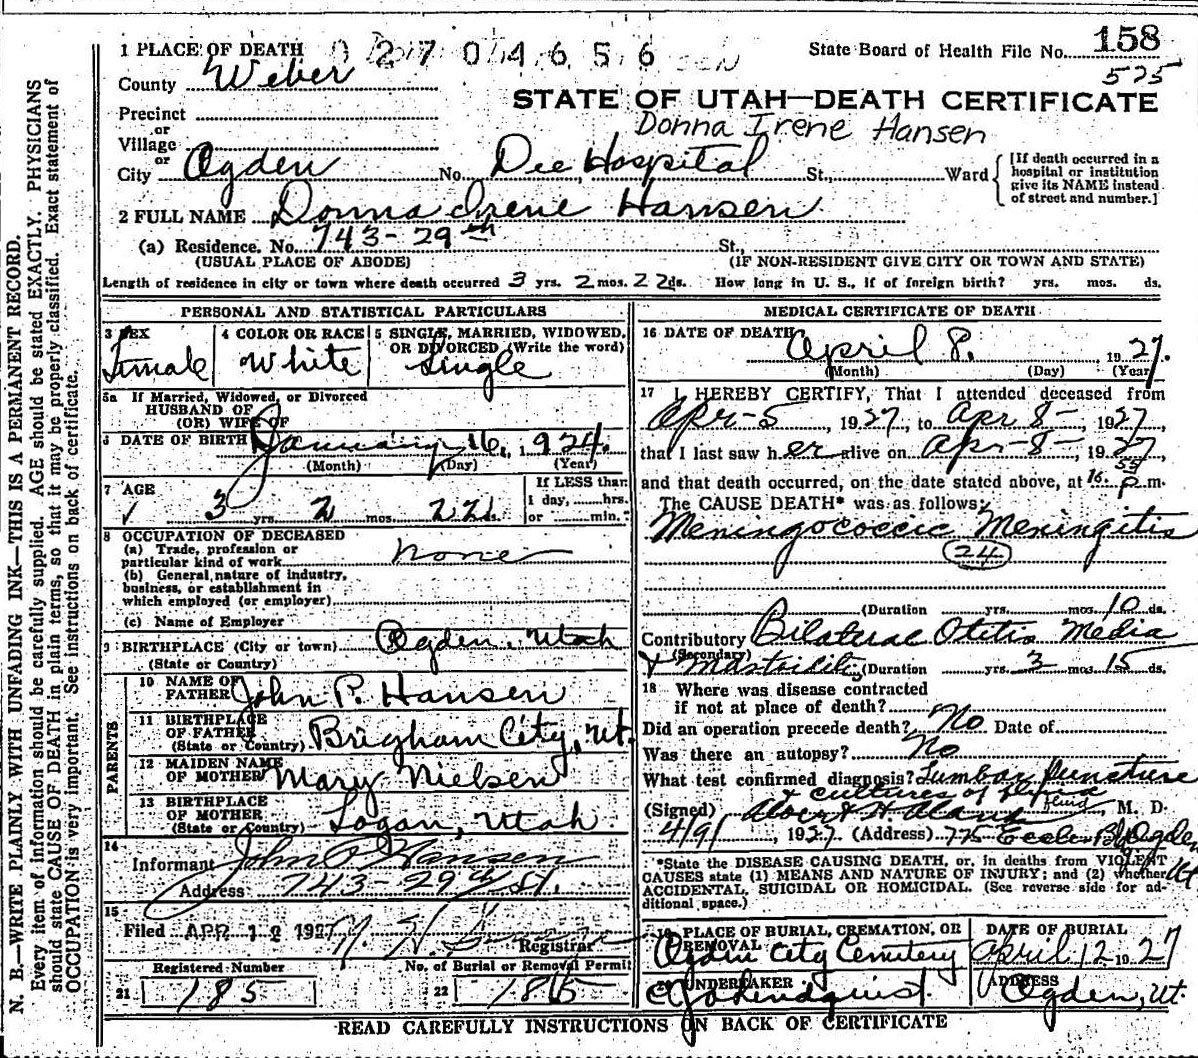 1 PLACE OF DEATH 0 2 7 0 4 6 5 6 State Board of Health File No. 158
County Weber 525
STATE OF UTAH—DEATH CERTIFICATE
Precinct
or
Village
Donna Irene Hansen
or
City Ogden No. Dee Hospital St., Ward
[If death occurred in a hospital or institution give its NAME instead of street and number.]
2 FULL NAME Donna Irene Hansen
(a) Residence. No. 743-29th St.,
(USUAL PLACE OF ABODE) (IF NON-RESIDENT GIVE CITY OR TOWN AND STATE)
Length of residence in city or town where death occurred 3 yrs. 2 mos. 22 ds. How long in U. S., if of foreign birth? yrs. mos. ds.
PERSONAL AND STATISTICAL PARTICULARS
3 SEX 4 COLOR OR RACE 5 SINGLE, MARRIED, WIDOWED,
OR DIVORCED (Write the word)
Female White Single
5a If Married, Widowed, or Divorced
HUSBAND OF
(OR) WIFE OF
6 DATE OF BIRTH January 16, 1924.
(Month) (Day) (Year)
7 AGE If LESS than
1 day, hrs.
3 yrs. 2 mos. 22 ds. or min.
8 OCCUPATION OF DECEASED
(a) Trade, profession or
particular kind of work none
(b) General nature of industry,
business, or establishment in
which employed (or employer)
(c) Name of Employer
9 BIRTHPLACE (City or town) Ogden, Utah
(State or Country)
PARENTS
10 NAME OF
FATHER John P. Hansen
11 BIRTHPLACE
OF FATHER
(State or Country) Brigham City, Ut.
12 MAIDEN NAME
OF MOTHER Mary Nielsen
13 BIRTHPLACE
OF MOTHER
(State or Country) Logan, Utah
14
Informant John P. Hansen
Address 743-29th St.
15
Filed APR 12 1927
Registrar
Registered Number No. of Burial or Removal Permit
21 185 22 1815
MEDICAL CERTIFICATE OF DEATH
16 DATE OF DEATH April 8. 1927.
(Month) (Day) (Year)
17 I HEREBY CERTIFY, That I attended deceased from
Apr-5, 1927, to Apr 8-, 1927
that I last saw her alive on Apr-8-, 1927
and that death occurred, on the date stated above, at P.m.
The CAUSE DEATH* was as follows:
Meningococcic Meningitis
24
(Duration yrs. mos. 10 ds.
Contributory Bilateral Otitis Media
(Secondary)
& Mastoiditis (Duration yrs. 3 mos. 15 ds.
18 Where was disease contracted
if not at place of death?
Did an operation precede death? No Date of
Was there an autopsy? No
What test confirmed diagnosis? Lumbar Puncture
& cultures of fluid
fluid
(Signed) M. D.
4/9/, 1927. (Address) 775 Eccles Bldg Ogden
Ut
*State the DISEASE CAUSING DEATH, or, in deaths from VIOLENT
CAUSES state (1) MEANS AND NATURE OF INJURY; and (2) whether
ACCIDENTAL, SUICIDAL OR HOMICIDAL. (See reverse side for ad-
ditional space.)
19 PLACE OF BURIAL, CREMATION, OR REMOVAL DATE OF BURIAL
Ogden City Cemetery April 12 1927
20 UNDERTAKER ADDRESS
Lindquist. Ogden, Ut.
READ CAREFULLY INSTRUCTIONS ON BACK OF CERTIFICATE
N. B.—WRITE PLAINLY WITH UNFADING INK—THIS IS A PERMANENT RECORD.
Every item of information should be carefully supplied. AGE should be stated EXACTLY. PHYSICIANS
should state CAUSE OF DEATH in plain terms, so that it may be properly classified. Exact statement of
OCCUPATION is very important. See instructions on back of certificate.